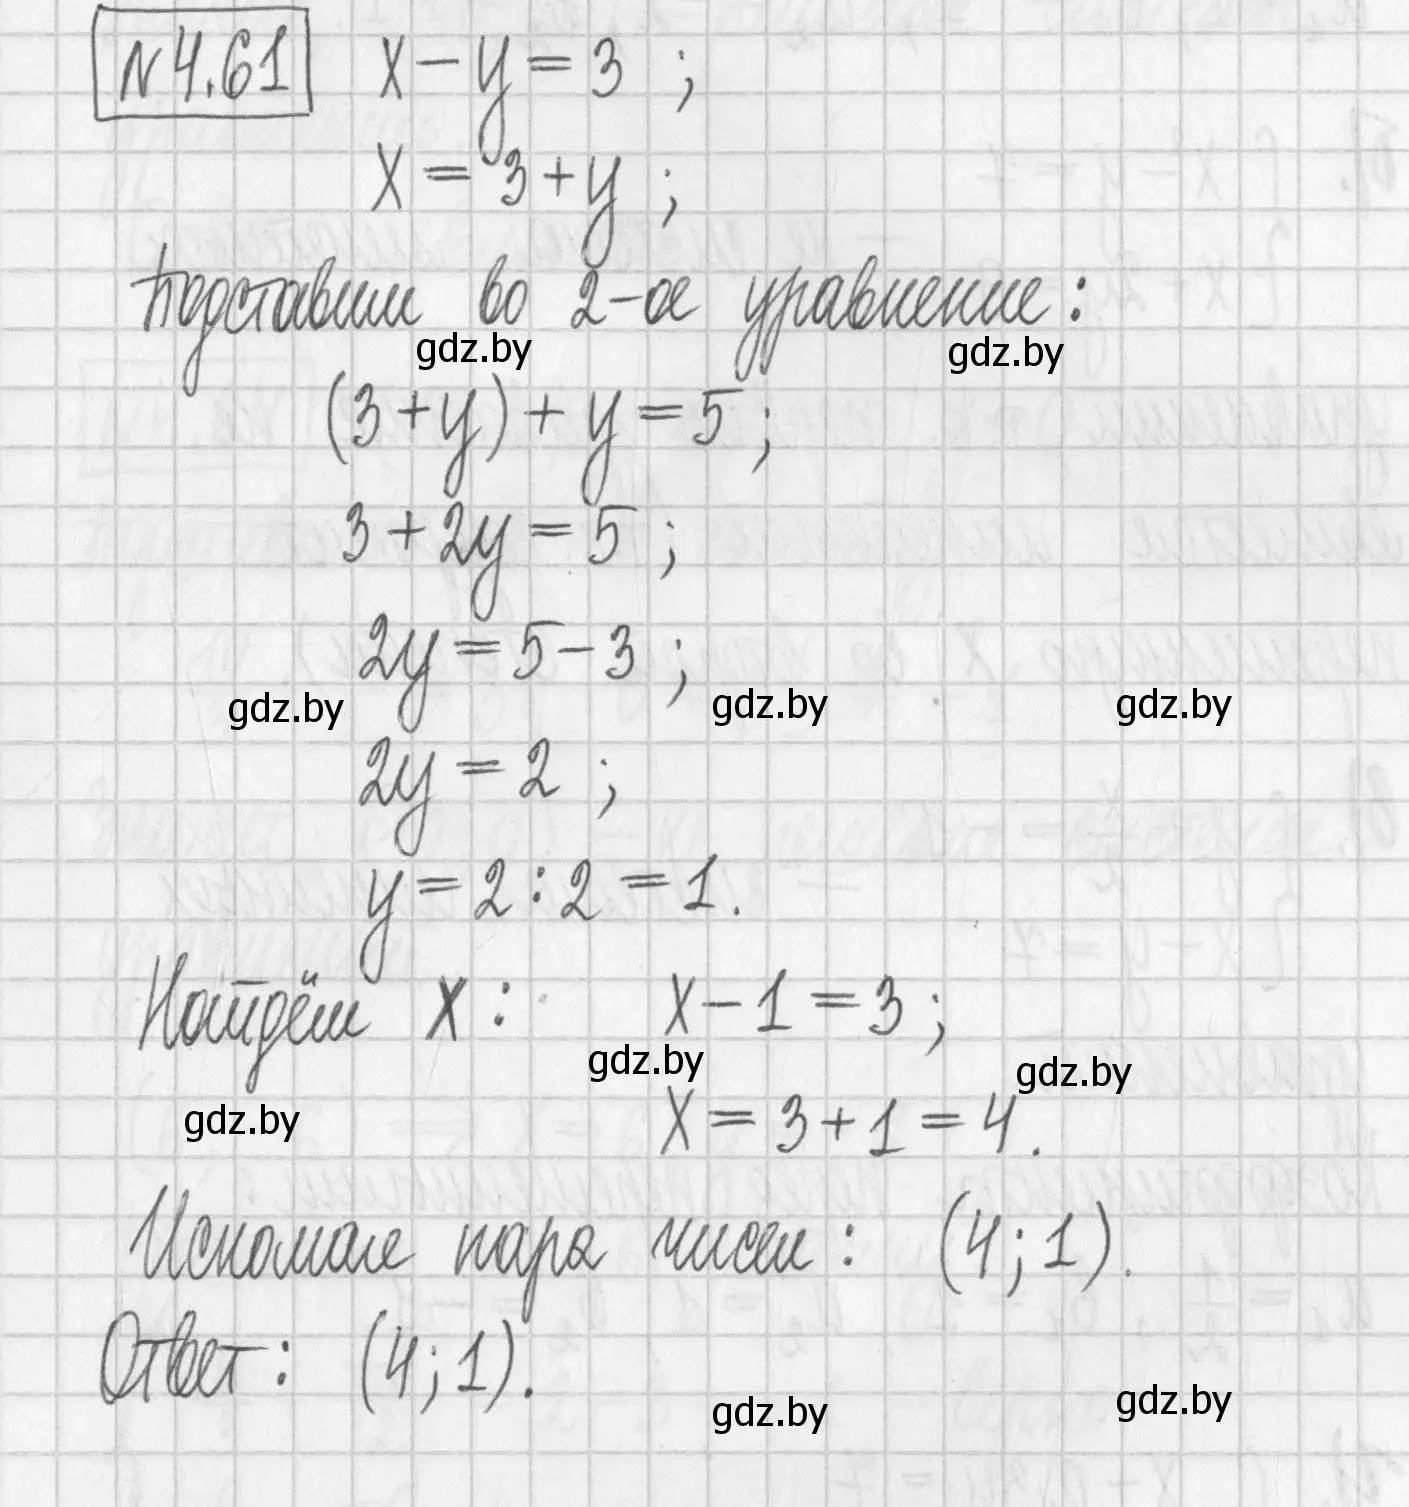 №4.61 x - y = 3 ;
x = 3 + y ;
Подставим во 2-ое уравнение:
gdz.by gdz.by
(3 + y) + y = 5 ;
3 + 2y = 5 ;
2y = 5 - 3 ;
gdz.by gdz.by gdz.by
2y = 2 ;
y = 2 : 2 = 1.
Найдём x : x - 1 = 3 ;
gdz.by gdz.by
gdz.by
x = 3 + 1 = 4.
Искомая пара чисел : (4 ; 1).
Ответ : (4 ; 1).
gdz.by gdz.by